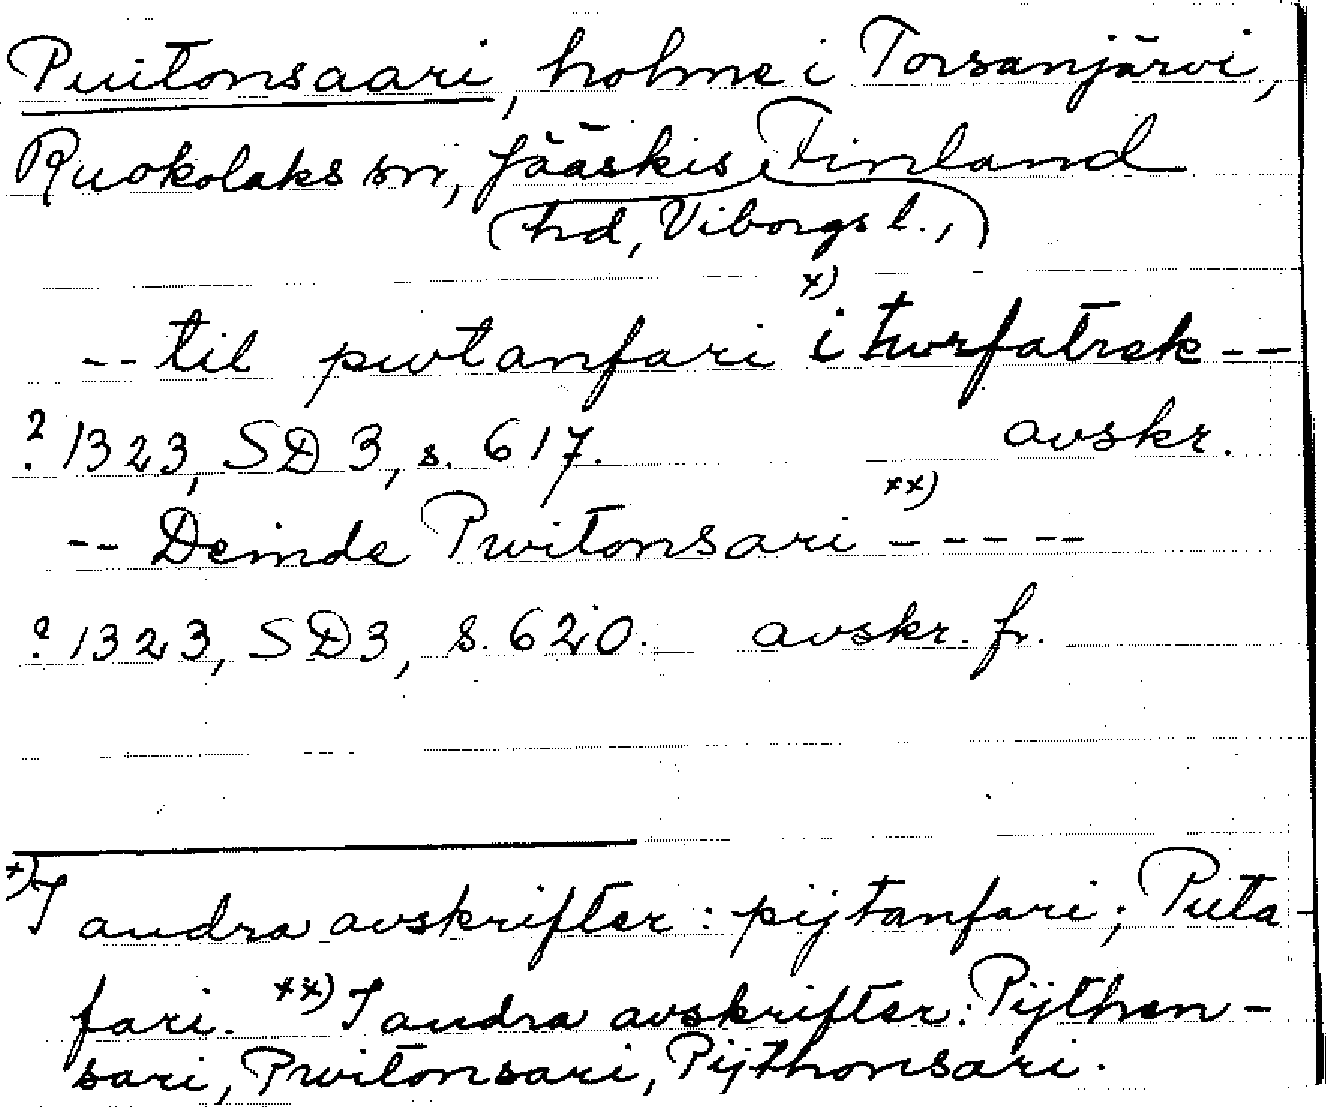 Puitonsaari, holme i Torsanjärvi,
Ruokolaks sn, Jääskis Finland
(hd, Viborgs l.,)
-- til pwtanfari x) i twrfatrsk --
? 1323, SD 3, s. 617. avskr.
-- Deinde Pwitonsari xx) -----
? 1323, SD3, s. 620. avskr. fr.
x) I andra avskrifter: pijtanfari; Puta-
fari. xx) I andra avskrifter: Pijthen-
sari, Pwitonsari, Pijthonsari.